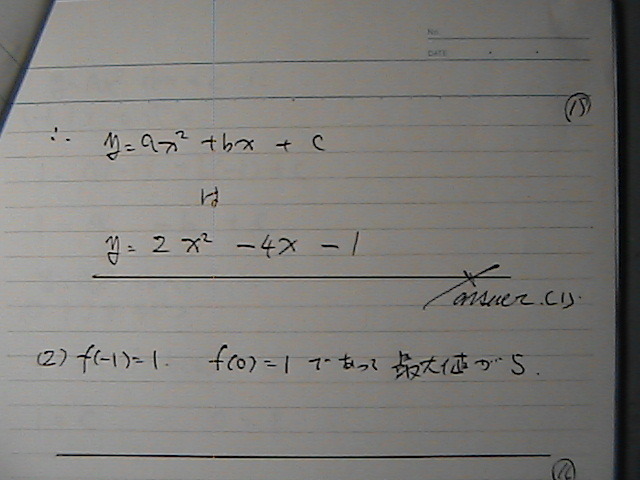 No.
DATE
⑮
∴ y=ax²+bx+c
は
y=2x²-4x-1
answer.(1).
(2) f(-1)=1. f(0)=1 であって 最大値が5.
⑯